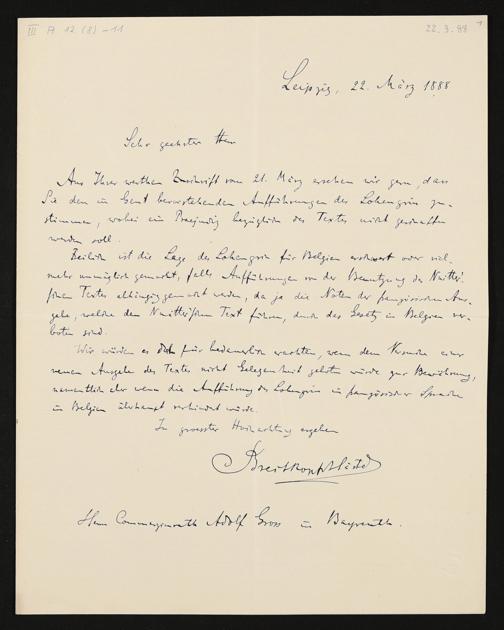 III A 12 (8) - 11
22.3.88
1
Leipzig, 22. März 1888
Sehr geehrter Herr
Aus Ihrer werthen Zuschrift vom 21. März ersehen wir gern, dass
Sie den in Gent bevorstehenden Aufführungen des Lohengrin zu-
stimmen, wobei ein Praejudiz bezüglich des Textes nicht geschaffen
werden soll.
ist die Lage des Lohengrin für Belgien erschwert oder viel-
mehr unmöglich gemacht, falls Aufführungen von der Benutzung des Nuitter-
schen Textes abhängig gemacht werden, da ja die Noten der französischen Aus-
gabe, welche den Nuitterschen Text führen, durch das Gesetz in Belgien ver-
boten sind.
Wir würden es für bedauerlich erachten, wenn dem Versuche einer
neuen Ausgabe des Textes nicht Gelegenheit geboten würde zur Bewährung,
namentlich aber wenn die Aufführung des Lohengrin in französischer Sprache
in Belgien überhaupt verhindert würde.
In grosster Hochachtung ergeben
Breitkopf & Härtel
Herrn Commerzienrath Adolf Gross in Bayreuth.